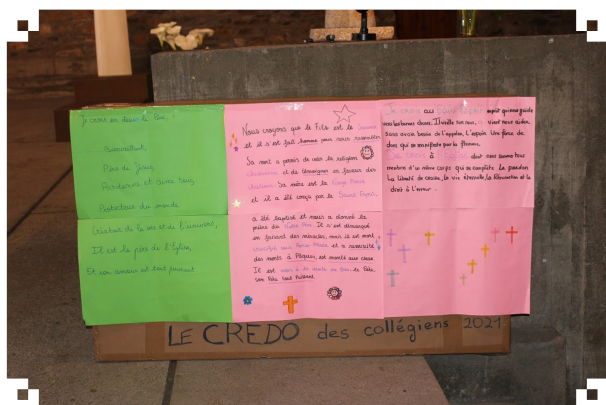 Je crois en Dieu le Père,
Bienveillant,
Père de Jésus,
Pardonne et aime tous,
Protecteur du monde
Créateur de la vie et de l'univers,
Il est le père de l'Eglise,
Et son amour est tout puissant
Nous croyons que le Fils est le Sauveur
et il s'est fait homme pour nous rassembler
Sa mort a permis de créer la religion
chrétienne et de témoigner en faveur des
chrétiens Sa mère est la Vierge Marie
et il a été conçu par le Saint Esprit,
a été baptisé et nous a donné la
prière du Notre Père. Il s'est démarqué
en faisant des miracles, mais il est mort
crucifié sous Ponce Pilate et a ressuscité
des morts à Pâques, est monté aux cieux
Il est assis à la droite du Père, le Fils,
son Fils tout puissant
Je crois au Saint Esprit esprit qui nous guide
vers les bonnes choses. Il veille sur nous, vient nous aider,
sans avoir besoin de l'appeler, l'espoir. Une force de
dieu qui se manifeste par la flamme,
Je crois à l'Eglise dont nous sommes tous
membre d'un même corps qui se complète. Le pardon
La liberté de croire, la vie éternelle, la Résurrection et le
droit à l'erreur.
LE CREDO des collégiens 2021